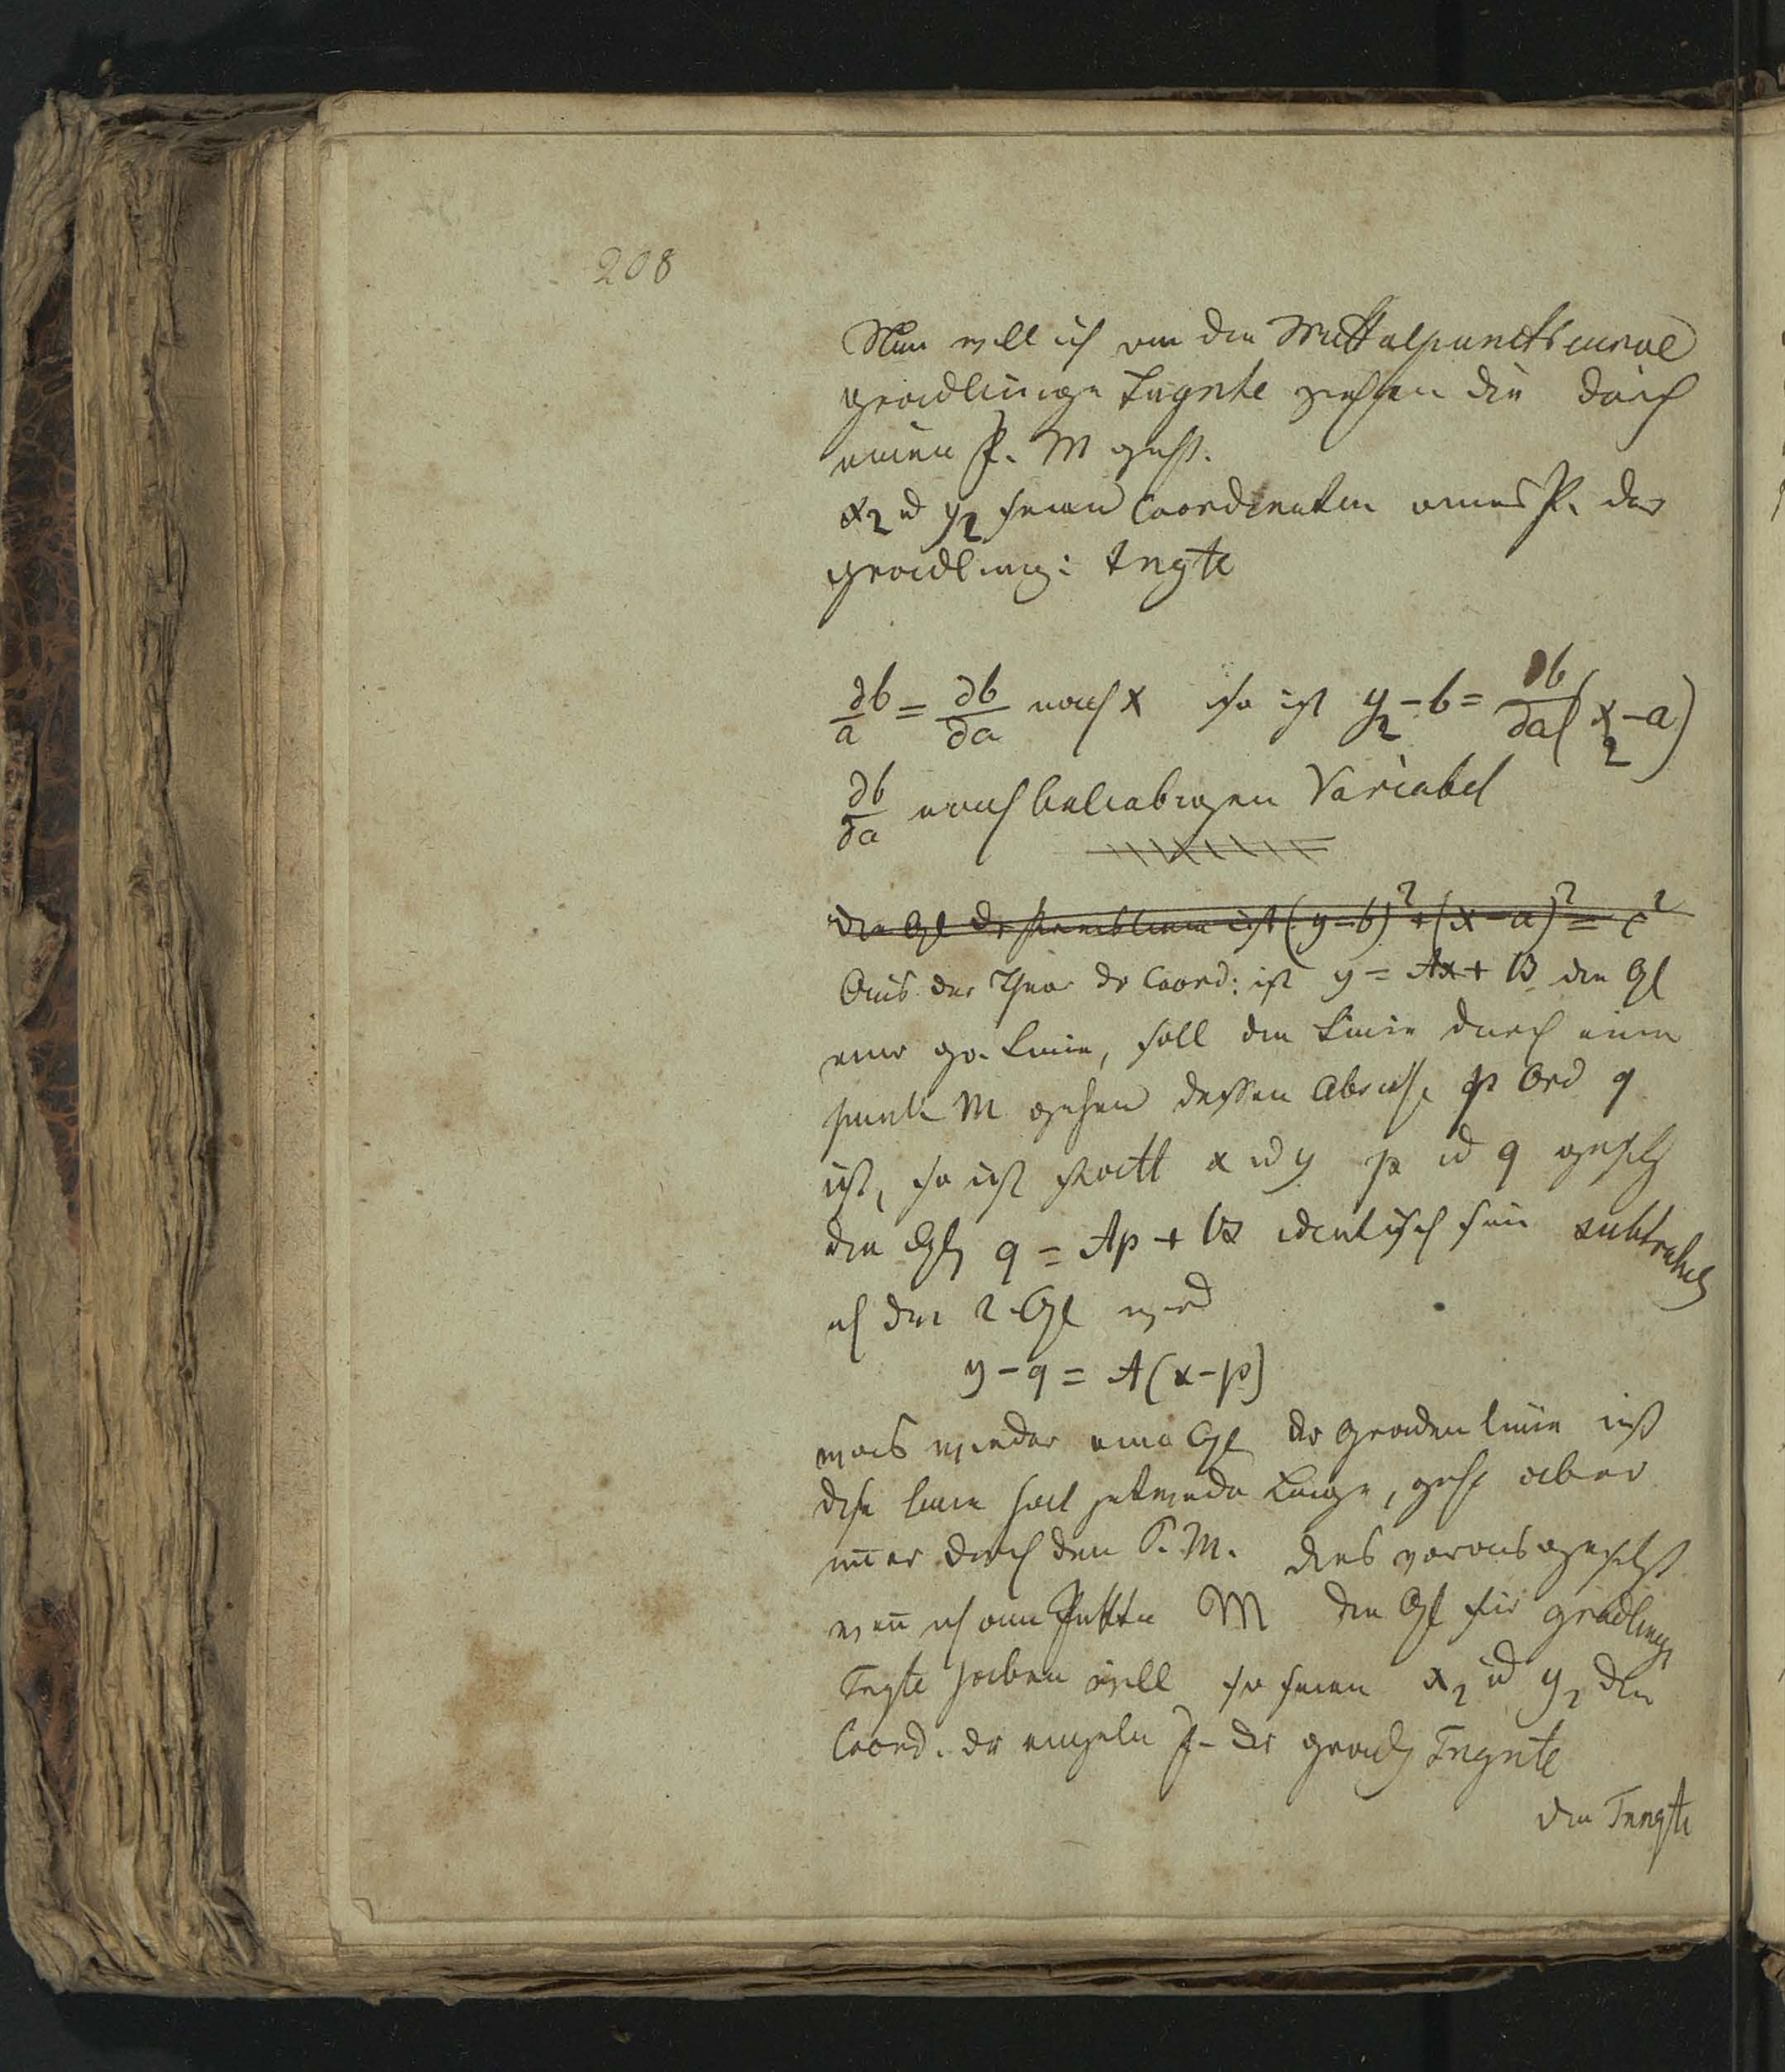 208
Nun will ich von der Mittelpunctscurve
geradlinige Tngnte ziehen die durch
einen P. M geht.
x₂ u y₂ seien Coordinaten eines P. der
geradlinig: Tngte
∂b/a = ∂b/∂a nach x so ist y₂ - b = ∂b/∂a (x₂ - a)
∂b/∂a nach beliebigen Variabel
die Gl der ist (y-b)² + (x-a)² = c²
Aus der Theor der Coord: ist y = Ax + B die Gl
einer gr. Linie, soll die Linie durch einen
punkt M gehen dessen Abscisse p Ord q
ist, so ist statt x u y p u q gesetz
die Glg q = Ap + B identisch sein subtrahir
ich die 2 Gl wird
y - q = A(x - p)
was wieder eine Gl der Graden linie ist
dise linie hat jetwede Lage, geht aber
im̅er durch den P. M. dies vorausgesetzt
wen̅ ich am Puktte M die Gl für gradlinig
Tngte haben will so seien x₂ u y₂ die
Coord. der einzeln P. der grad Tngnte
die Tnngte